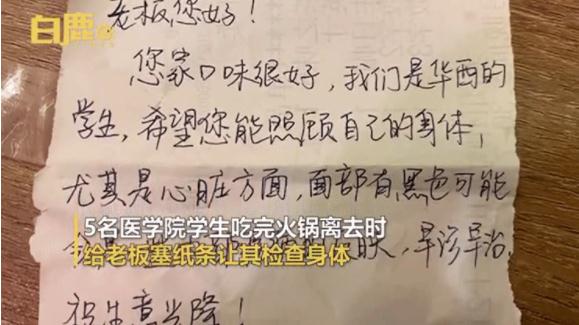 白鹿
老板您好！
您家口味很好，我们是华西的
学生，希望您能照顾自己的身体，
尤其是心脏方面，面部有黑色可能
5名医学院学生吃完火锅离去时
早诊早治，
给老板塞纸条让其检查身体
祝生意兴隆！